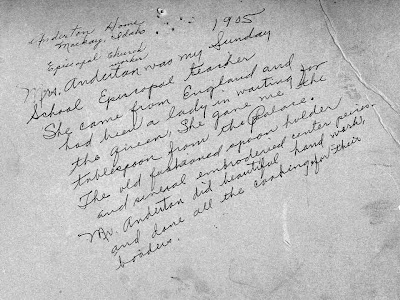 Anderton Home 1905
Mackay, Idaho
Episcopal Church
worker
Mrs. Anderton was my Sunday
School Episcopal teacher
She came from England and
had been a lady in waiting for
the Queen, She gave me the
tablespoon from the Palace.
The old fashioned spoon holder
and several embrodered center peices.
Mr. Anderton did beautiful hand work,
and done all the cooking for their
boaders.